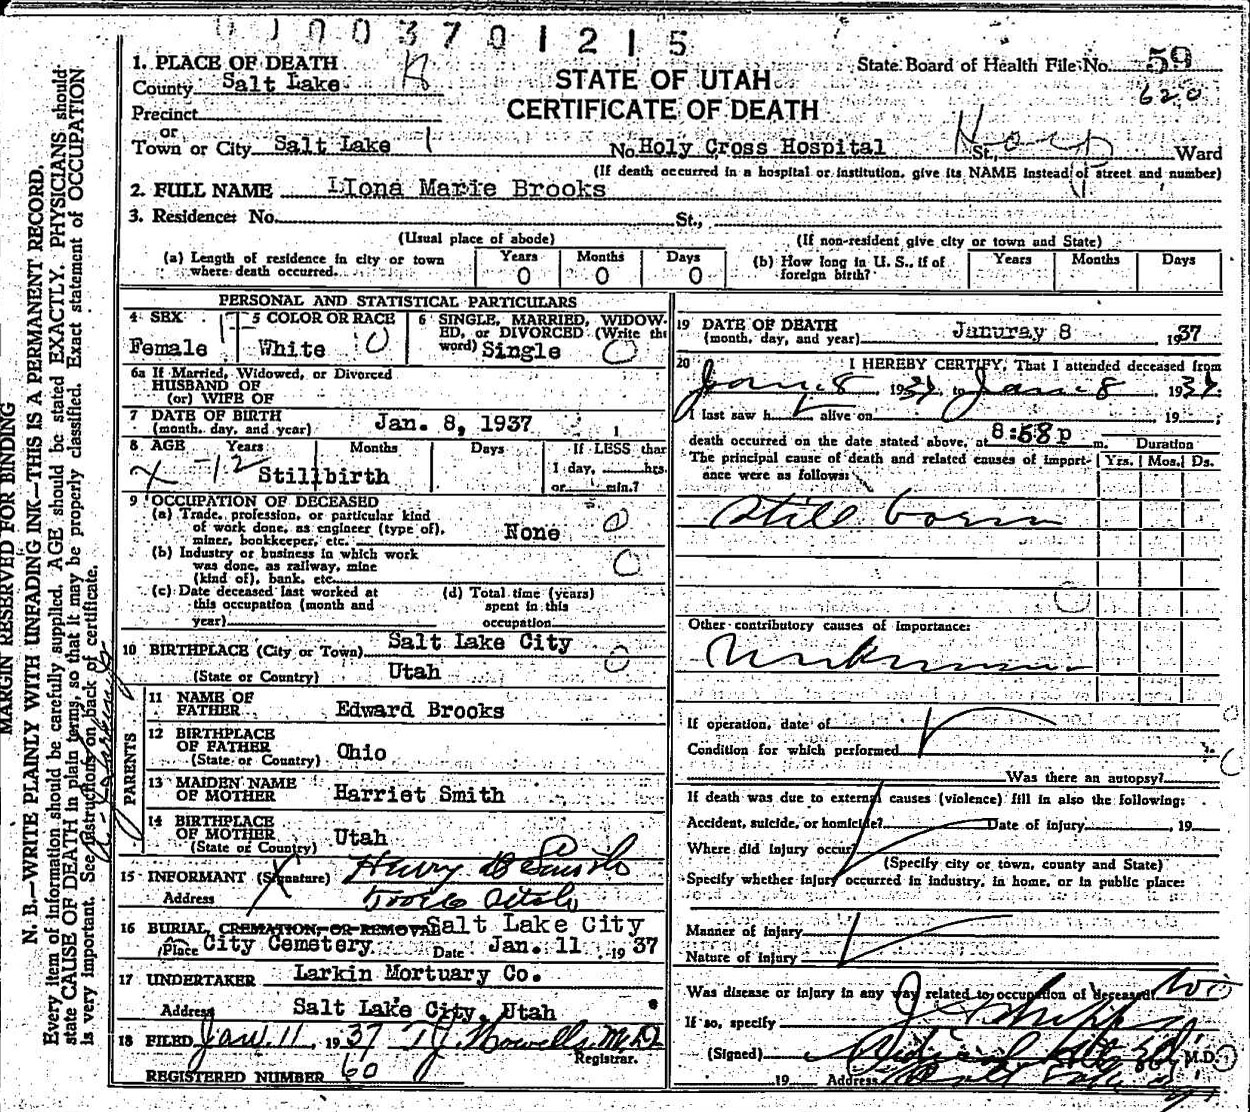 0 1 0 0 3 7 0 1 2 1 5
1. PLACE OF DEATH
State Board of Health File No. 59
County Salt Lake
STATE OF UTAH
620
Precinct
CERTIFICATE OF DEATH
or
Town or City Salt Lake 1 No. Holy Cross Hospital St., Ward
(If death occurred in a hospital or institution, give its NAME instead of street and number)
2. FULL NAME LIona Marie Brooks
3. Residence: No. St.,
(Usual place of abode) (If non-resident give city or town and State)
(a) Length of residence in city or town where death occurred. Years 0 Months 0 Days 0
(b) How long in U. S., if of foreign birth? Years Months Days
PERSONAL AND STATISTICAL PARTICULARS
4 SEX Female
5 COLOR OR RACE White 0
6 SINGLE, MARRIED, WIDOWED, or DIVORCED (Write the word) Single 0
6a If Married, Widowed, or Divorced
HUSBAND OF
(or) WIFE OF
7 DATE OF BIRTH (month, day, and year) Jan. 8, 1937
8 AGE Years Months Days If LESS than
1 day, hrs.
or min.?
Stillbirth
9 OCCUPATION OF DECEASED
(a) Trade, profession, or particular kind
of work done, as engineer (type of),
miner, bookkeeper, etc. None 0
(b) Industry or business in which work
was done, as railway, mine
(kind of), bank, etc. 0
(c) Date deceased last worked at
this occupation (month and
year)
(d) Total time (years)
spent in this
occupation
10 BIRTHPLACE (City or Town) Salt Lake City
(State or Country) Utah 0
PARENTS
11 NAME OF FATHER Edward Brooks
12 BIRTHPLACE OF FATHER (State or Country) Ohio
13 MAIDEN NAME OF MOTHER Harriet Smith
14 BIRTHPLACE OF MOTHER (State or Country) Utah
15 INFORMANT (Signature) Henry
Address Utah
16 BURIAL, CREMATION, OR REMOVAL Salt Lake City
Place City Cemetery Date Jan. 11 19 37
17 UNDERTAKER Larkin Mortuary Co.
Address Salt Lake City, Utah
18 FILED Jan. 11 1937 T.J. Howells. M.D.
Registrar.
REGISTERED NUMBER 60
19 DATE OF DEATH (month, day, and year) Januray 8 1937
20 I HEREBY CERTIFY, That I attended deceased from
Jan. 8 1937, to Jan. 8 1937.
I last saw h alive on 19 ;
death occurred on the date stated above, at 8:58 p m. Duration
The principal cause of death and related causes of importance were as follows: Yrs. Mos. Ds.
Still born
Other contributory causes of importance:
Unknown
If operation, date of
Condition for which performed
Was there an autopsy?
If death was due to external causes (violence) fill in also the following:
Accident, suicide, or homicide? Date of injury , 19
Where did injury occur?
(Specify city or town, county and State)
Specify whether injury occurred in industry, in home, or in public place:
Manner of injury
Nature of injury
Was disease or injury in any way related to occupation of deceased? No
If so, specify
(Signed) M.D.
19 Address
MARGIN RESERVED FOR BINDING
N. B.—WRITE PLAINLY WITH UNFADING INK—THIS IS A PERMANENT RECORD.
Every item of information should be carefully supplied. AGE should be stated EXACTLY. PHYSICIANS should
state CAUSE OF DEATH in plain terms, so that it may be properly classified. Exact statement of OCCUPATION
is very important. See instructions on back of certificate.